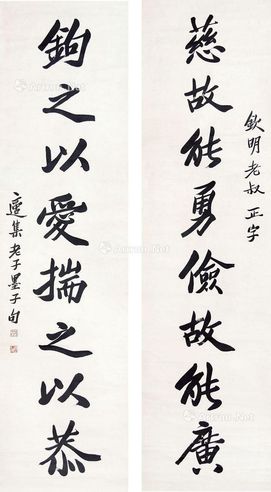 欽明老叔 正字
慈故能勇儉故能廣
鉤之以愛揣之以恭
集老子墨子句